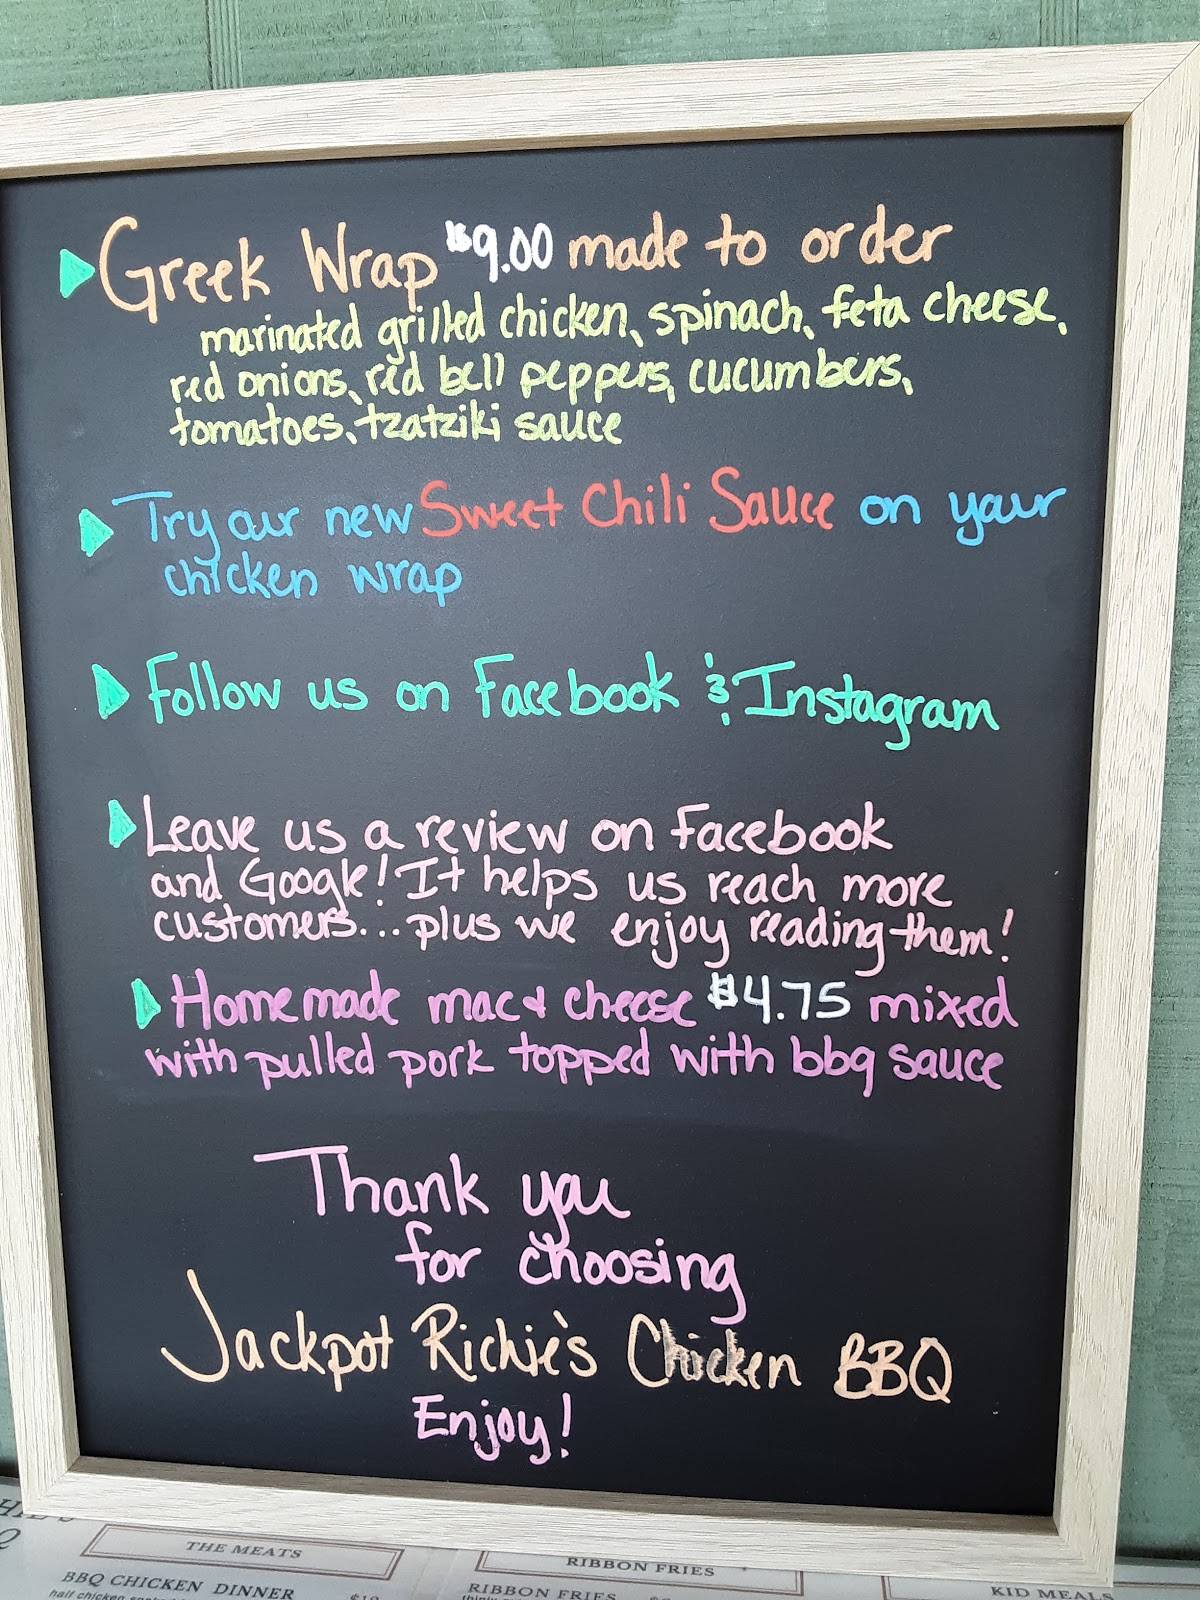 Greek Wrap $9.00 made to order
marinated grilled chicken, spinach, feta cheese,
red onions, red bell peppers, cucumbers,
tomatoes, tzatziki sauce
Try our new Sweet Chili Sauce on your
chicken wrap
Follow us on Facebook & Instagram
Leave us a review on Facebook
and Google! It helps us reach more
customers...plus we enjoy reading them!
Homemade mac & cheese $4.75 mixed
with pulled pork topped with bbq sauce
Thank you
for choosing
Jackpot Richie's Chicken BBQ
Enjoy!
THE MEATS
RIBBON FRIES
KID MEALS
BBQ CHICKEN DINNER
RIBBON FRIES
half chicken